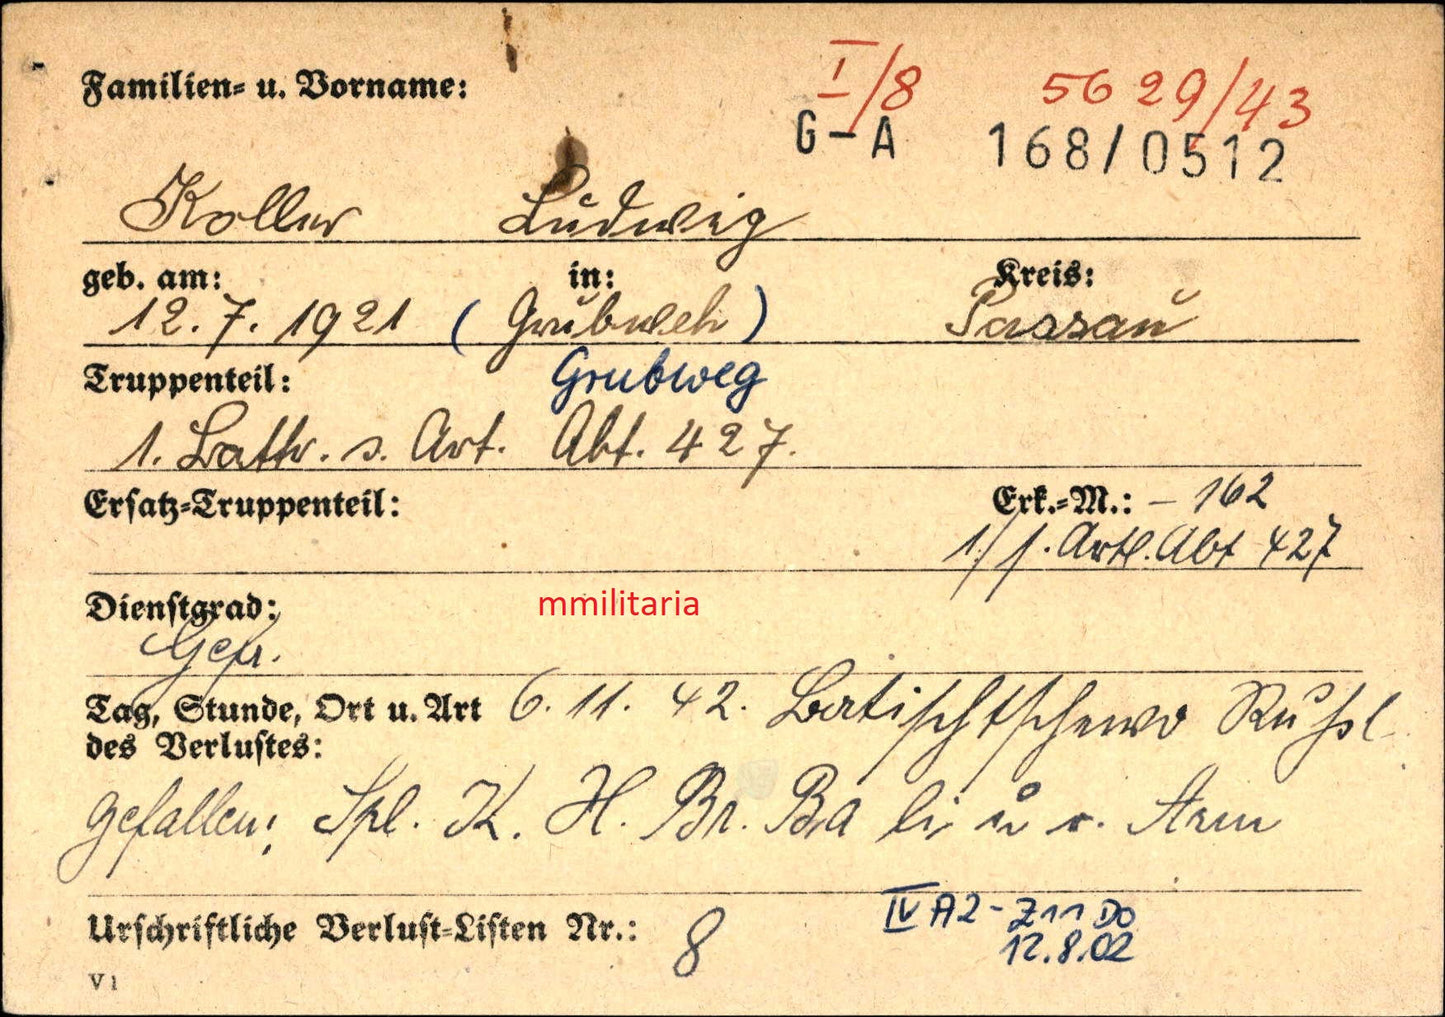 Familien- u. Vorname:
I/8 5629/43
G-A 168/0512
Koller Ludwig
geb. am: in: Kreis:
12.7.1921 (Grubweh) Passau
Truppenteil: Grubweg
1. Battr. s. Art. Abt. 427.
Ersatz-Truppenteil: Erk.-M.: – 162
1./s. Artl. Abt 427
Dienstgrad:
Gefr.
Tag, Stunde, Ort u. Art 6.11.42. Batischtschewo Rußl.
des Verlustes:
gefallen; Spl. K. H. Br. Ba li u r. Arm
Urschriftliche Verlust-Listen Nr.: 8
IV A2-Z11 Do
12.8.02
V1
mmilitaria